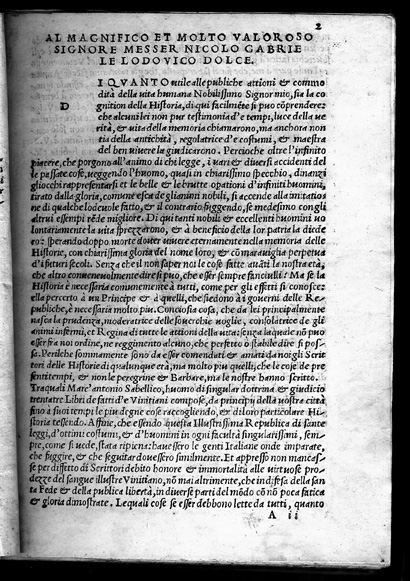 2
AL MAGNIFICO ET MOLTO VALOROSO
SIGNORE MESSER NICOLO GABRIE
LE LODOVICO DOLCE.
D
I QVANTO utile alle publiche attioni & commo
dità della vita humana Nobilissimo Signor mio, sia la co
gnition della Historia, di qui facilmẽte si puo cõprendere:
che alcuni lei non pur testimonia d'e tempi, luce della ve
rità, & vita della memoria chiamarono, ma anchora non
tia della antichità, regolatrice d'e costumi, & maestra
del ben vivere la giudicarono. Percioche oltre l'infinito
piacere, che porgono all'animo di chi legge, i vari & diversi accidenti del
le passate cose, veggendo l'huomo, quasi in chiarissimo specchio, dinanzi
gliocchi rappresentarsi et le belle & le brutte operationi d'infiniti huomini,
tirato dalla gloria, commune esca de gli animi nobili, si accende alla imitatio
ne di quelle lodevole fatto, & il contrario fuggendo, se medesimo con gli
altrui essempi rẽde migliore. Di qui tanti nobili & eccellenti huomini vo
lontariamente la vita sprezzarono, & à beneficio della lor patria la diede
ro: sperando doppo morte dover vivere eternamente nella memoria delle
Historie, con chiarissima gloria del nome loro, & cõ maraviglia perpetua
d'i futuri secoli. Senza che il non saper noi le cose fatte avãti la nostra età,
che altro convenevolmente dire si puo, che esser sempre fanciulli? Ma se la
Historia è necessaria comunemente à tutti, come per gli effetti si conosce:
ella per certo à un Principe & à quelli, che siedono à i governi delle Re
publiche, è necessaria molto piu. Conciosia cosa, che da lei principalmente
nasca la prudenza, moderatrice delle soverchie voglie, consolatrice de gli
animi infermi, et Regina di tutte le attioni della vita: senza laquale nõ puo
esser fra noi ordine, ne reggimento alcuno, che perfetto ò stabile dire si pos
sa. Perilche sommamente sono da esser comendati & amati da noi gli Scrit
tori delle Historie di qualunque età, ma molto piu quelli, che le cose de pre
senti tempi, & non le peregrine & Barbare, ma le nostre hanno scritto.
Tra quali Marc'antonio Sabellico, huomo di singular dottrina & giudicio
trentatre Libri de fatti d'e Vinitiani compose, da principij della vostra città
fino à suoi tempi le piu degne cose raccogliendo, & di loro particolare Hi-
storia tessendo. Affine, che essendo questa Illustrissima Republica di sante
leggi, d'ottimi costumi, & d'huomini in ogni facultà singularissimi, sem-
pre, come si vede, stata ripiena: havessero le genti Italiane onde imparare,
che fuggire, & che seguitar dovessero similmente. Et appresso non mancas-
se per diffetto di Scrittori debito honore & immortalità alle virtuose pro-
dezze del sangue illustre Vinitiano, nõ mai altrimente, che in difesa della san
ta Fede & della publica libertà, in diverse parti del mõdo cõ nõ poca fatica
& gloria dimostrate. Lequali cose se esser debbono lette da tutti, quanto
A ii